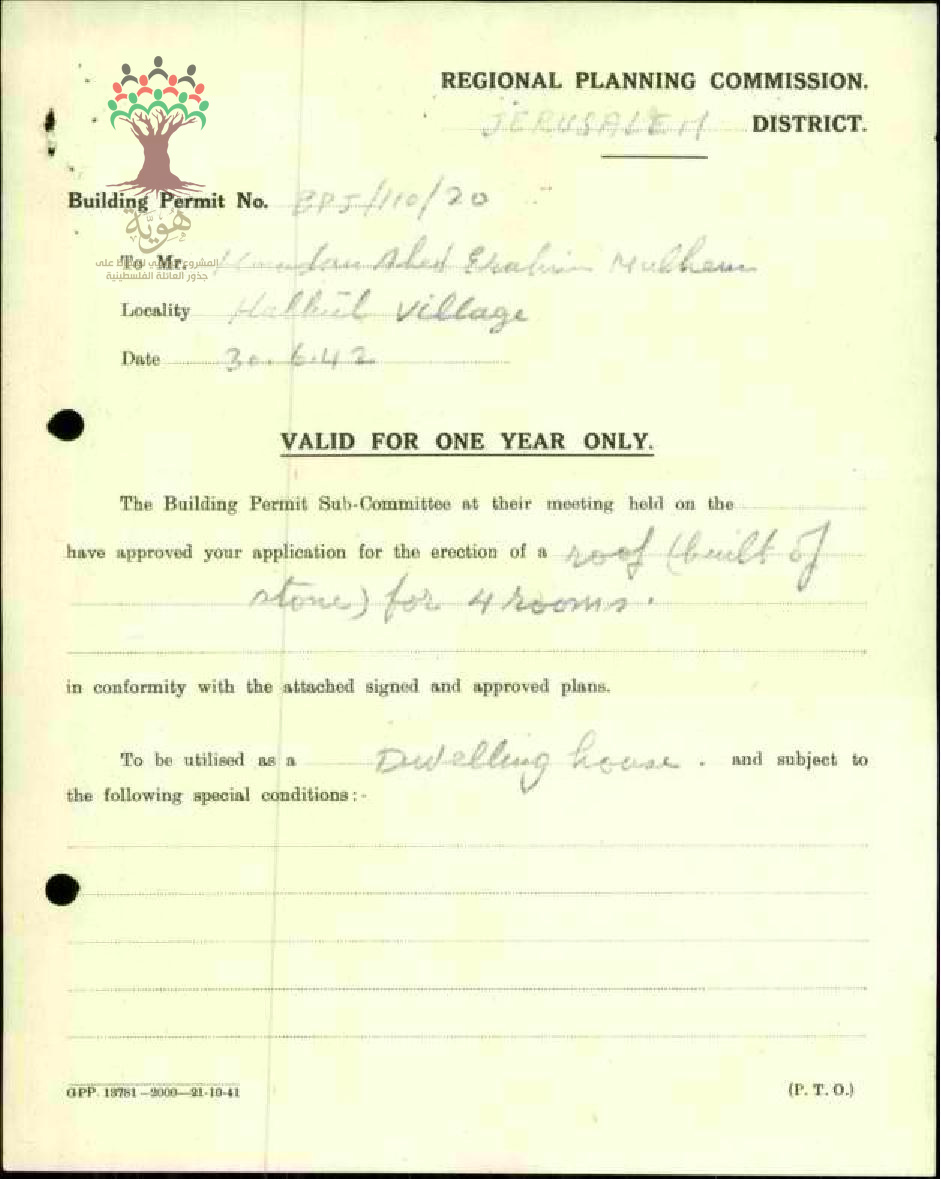 REGIONAL PLANNING COMMISSION.
JERUSALEM DISTRICT.
Building Permit No. BPJ/110/20
هُوِيَّة
المشروع
جذور العائلة الفلسطينية
To Mr. Abed Erahim Mulhem
Locality Halhul Village
Date 30.6.42
VALID FOR ONE YEAR ONLY.
The Building Permit Sub-Committee at their meeting held on the
have approved your application for the erection of a roof (built of
stone) for 4 rooms.
in conformity with the attached signed and approved plans.
To be utilised as a Dwelling house . and subject to
the following special conditions:-
GPP. 13781—2000—21-10-41
(P. T. O.)